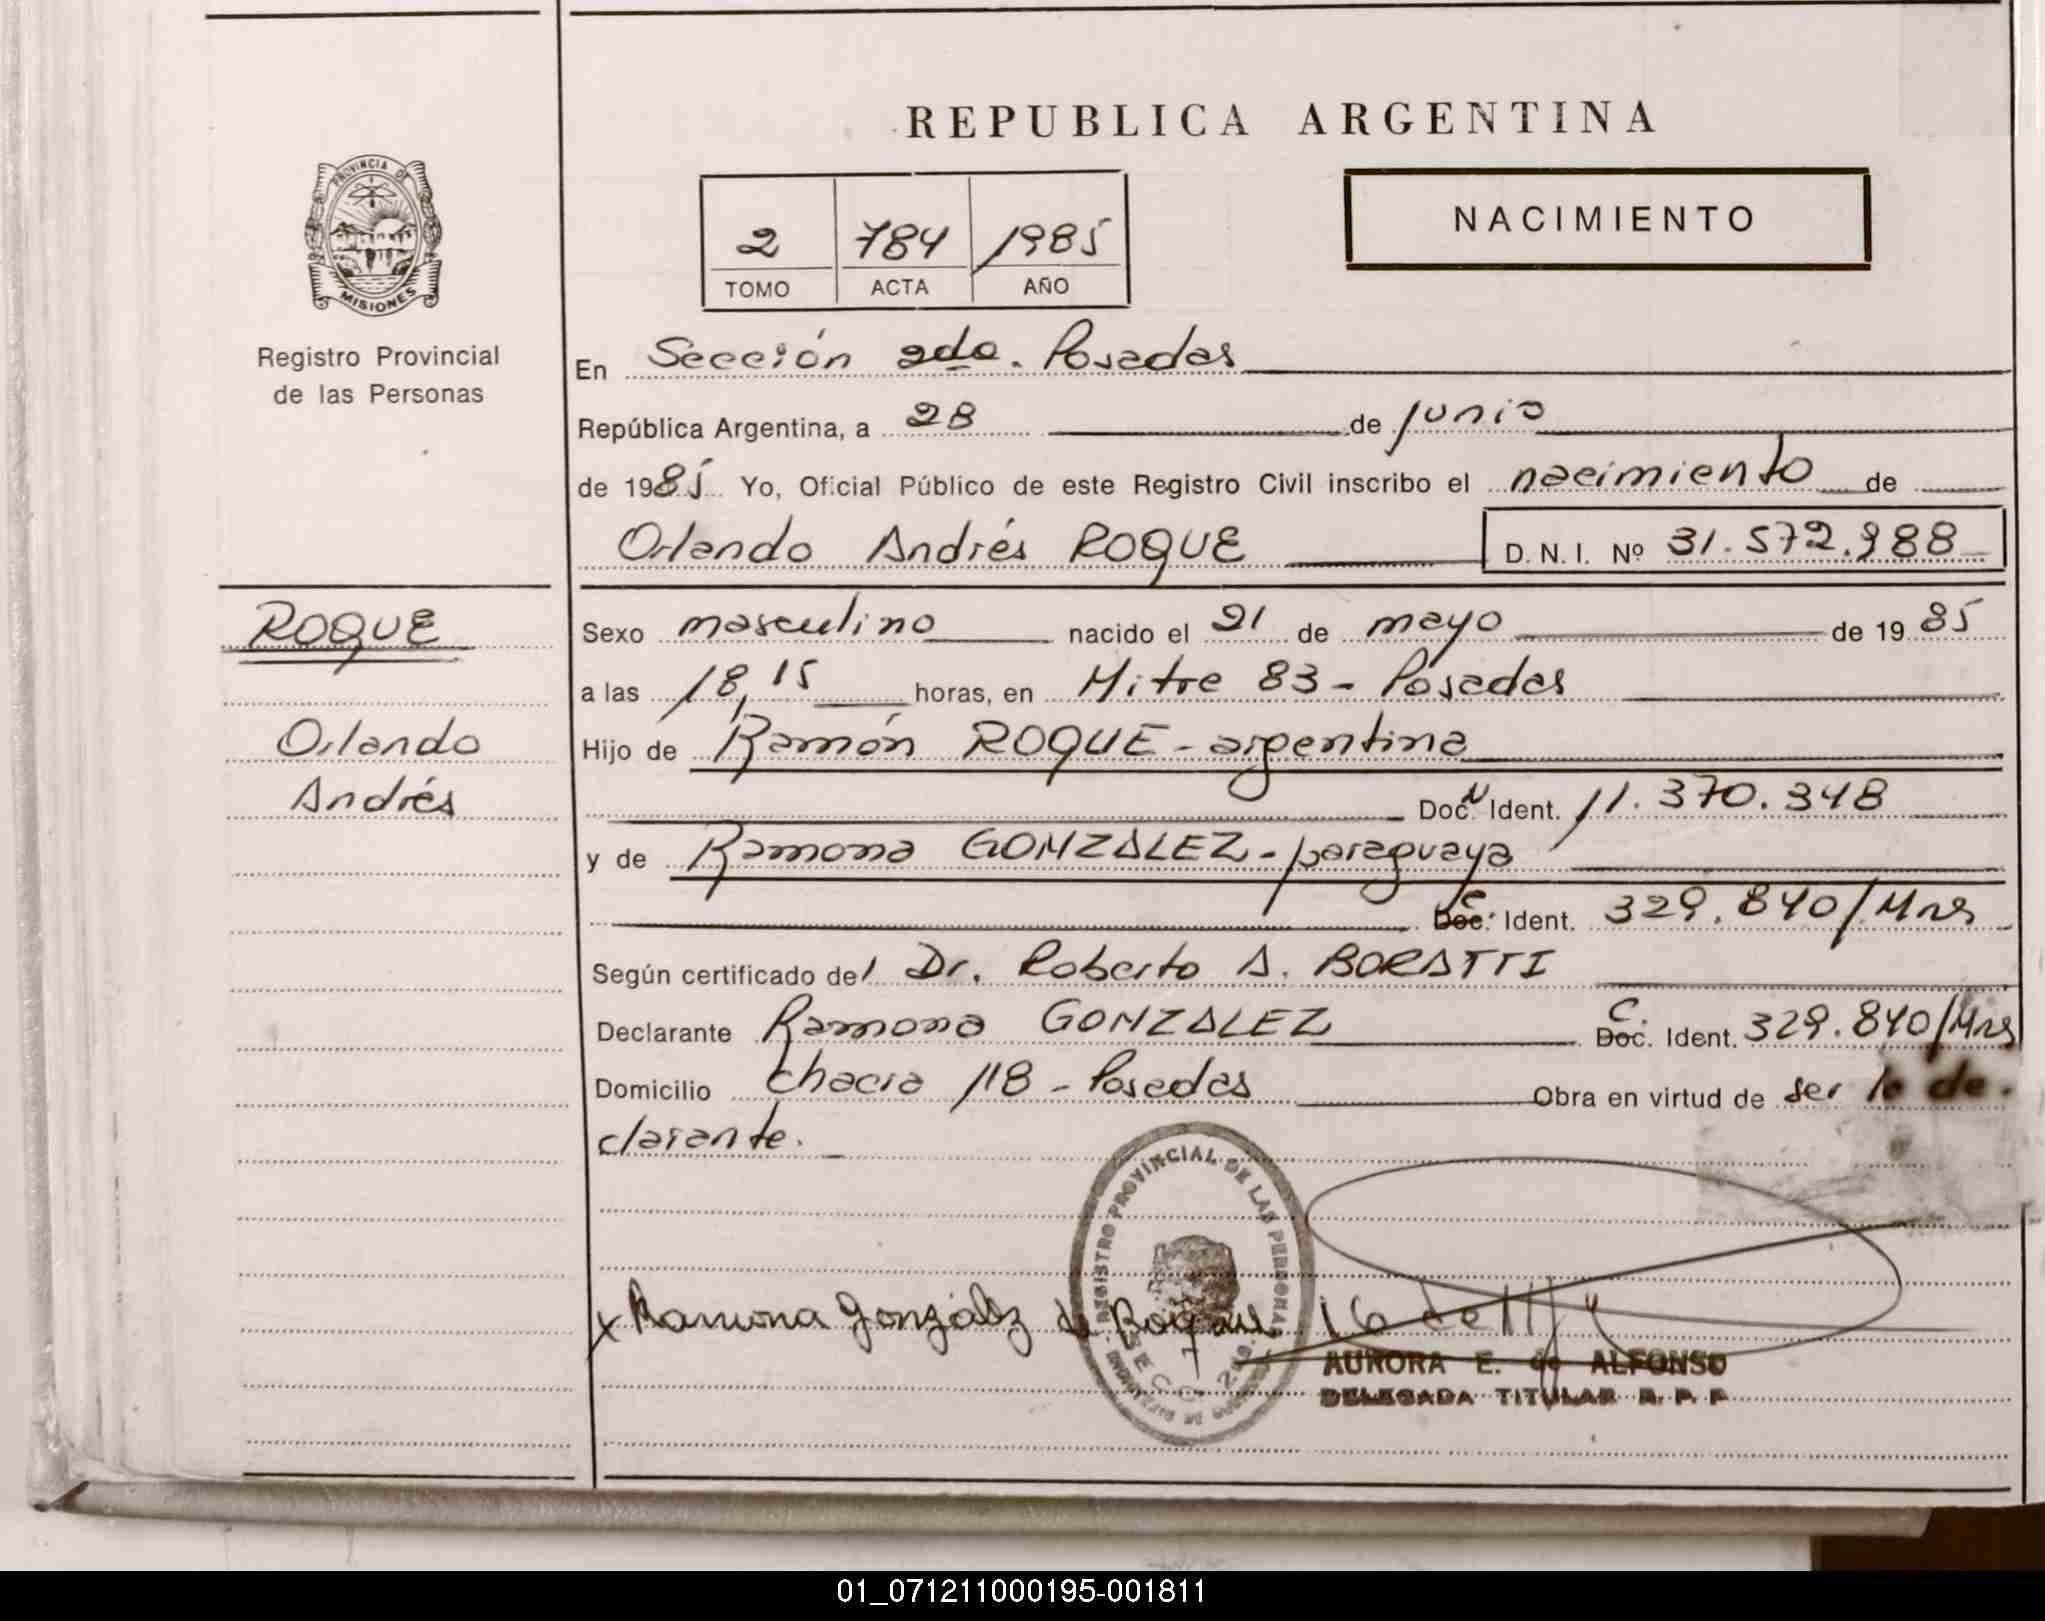 REPUBLICA ARGENTINA
PROVINCIA DE
MISIONES
Registro Provincial
de las Personas
2 784 1985
TOMO ACTA AÑO
NACIMIENTO
En Sección 2da. Posadas
República Argentina, a 28 de junio
de 1985 Yo, Oficial Público de este Registro Civil inscribo el nacimiento de
Orlando Andrés ROQUE D. N. I. Nº 31.572.988
ROQUE
Orlando
Andrés
Sexo masculino nacido el 21 de mayo de 1985
a las 18,15 horas, en Mitre 83 - Posadas
Hijo de Ramón ROQUE - argentina
Doc. N Ident. 11.370.348
y de Ramona GONZALEZ - paraguaya
Doc. C. Ident. 329.840/Mns
Según certificado del Dr. Roberto A. BORATTI
Declarante Ramona GONZALEZ Doc. C. Ident. 329.840/Mns
Domicilio Chacra 118 - Posadas Obra en virtud de ser la de-
clarante.
REGISTRO PROVINCIAL DE LAS PERSONAS
SECC. 2da.
x Ramona González de Roque
AURORA E. de ALFONSO
DELEGADA TITULAR R. P. P
01_071211000195-001811